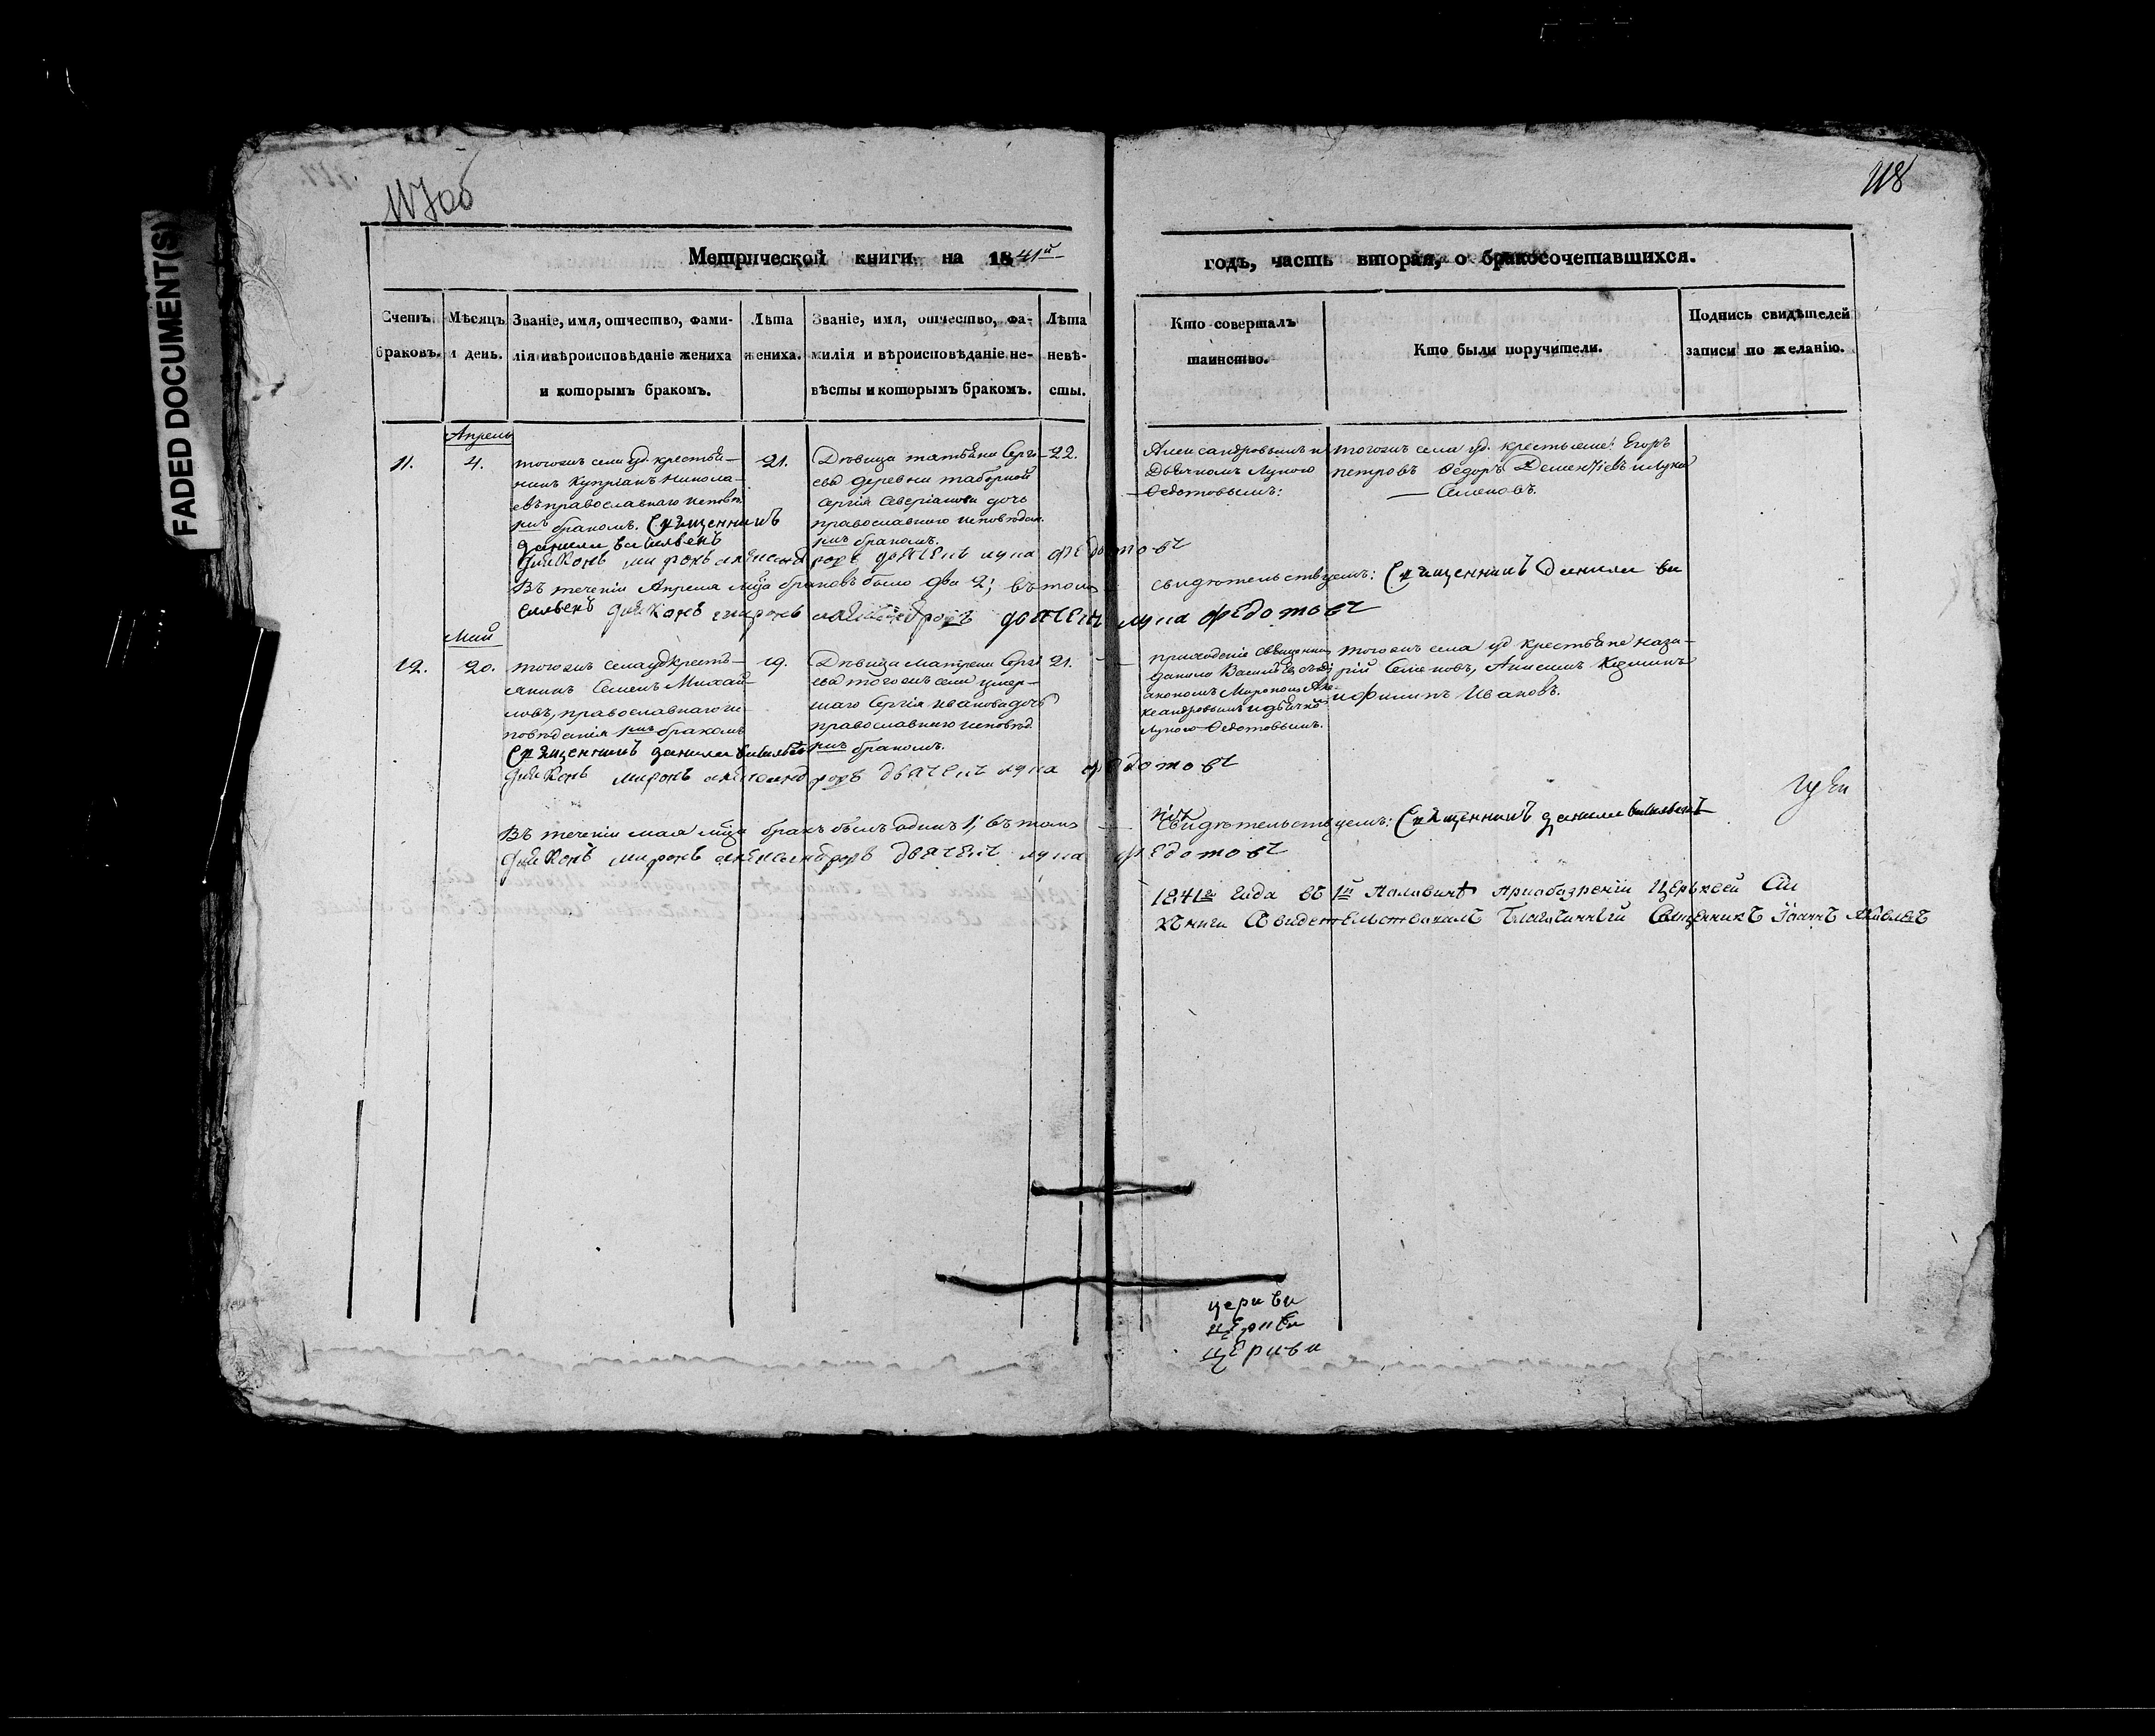 FADED DOCUMENT(S)
117об
118
Метрической книги на 1841й
годъ, часть вторая, о бракосочетавшихся.
Счетъ браковъ.
Мѣсяцъ и день.
Званіе, имя, отчество, фами-
лія и вѣроисповѣданіе жениха
и которымъ бракомъ.
Лѣта
жениха.
Званіе, имя, отчество, фа-
милія и вѣроисповѣданіе не-
вѣсты и которымъ бракомъ.
Лѣта
невѣ-
сты.
Кто совершалъ
таинство.
Кто были поручители.
Подпись свидѣтелей
записи по желанію.
Апрель
11.
4.
тогожъ села уд. крестья-
нинъ Купріанъ Никола-
евъ православнаго исповѣд.
рмъ бракомъ.
21.
Дѣвица татьяна Серги-
ева деревни таборной
Сергія Северіанова дочь
православнаго исповѣдан.
рмъ бракомъ.
22.
Александровымъ и
Дьячкомъ Лукою
Ѳедотовымъ:
тогожъ села уд. крестьяне: Егоръ
петровъ Ѳедоръ Дементіевъ и Лука
Семеновъ.
Священникъ
данила васильевъ
диаконъ миронъ александровъ дьячекъ лука федотовъ
Въ теченіи Апреля мца браковъ было два 2; въ томъ
свидѣтельствуемъ: Священникъ данила ва
сильевъ диаконъ миронъ александровъ дьячекъ лука федотовъ
Май
12.
20.
тогожъ села уд крестъ-
янинъ Семенъ Михай-
ловъ, православнаго ис-
повѣданія рмъ бракомъ
19.
Дѣвица Матрена Сергі
ева тогожъ села умер-
шаго Сергія Иванова дочь
православнаго исповѣд
рмъ бракомъ.
21.
приходскіе священник
Данило Васильевъ съ ді
акономъ Мирономъ Але-
ксандровымъ и дьячкомъ
Лукою Ѳедотовымъ.
тогожъ села уд крестьяне Наза-
рій Семеновъ, Анисимъ Козминъ
и Филипъ Ивановъ.
Священникъ данила васильевъ
диаконъ миронъ александровъ дьячекъ лука федотовъ
Въ теченіи мая мца бракъ былъ одинъ 1; въ томъ
свидѣтельствуемъ: Священникъ данила васильевъ
диаконъ миронъ александровъ дьячекъ лука федотовъ
1841го Года въ 1й Половинѣ приобозреніи Церьквей Сіи
Кѣниги Свидетельствовалъ Благочинный Священикъ Іоаннъ Яковлевъ
церкви
церкви
церкви